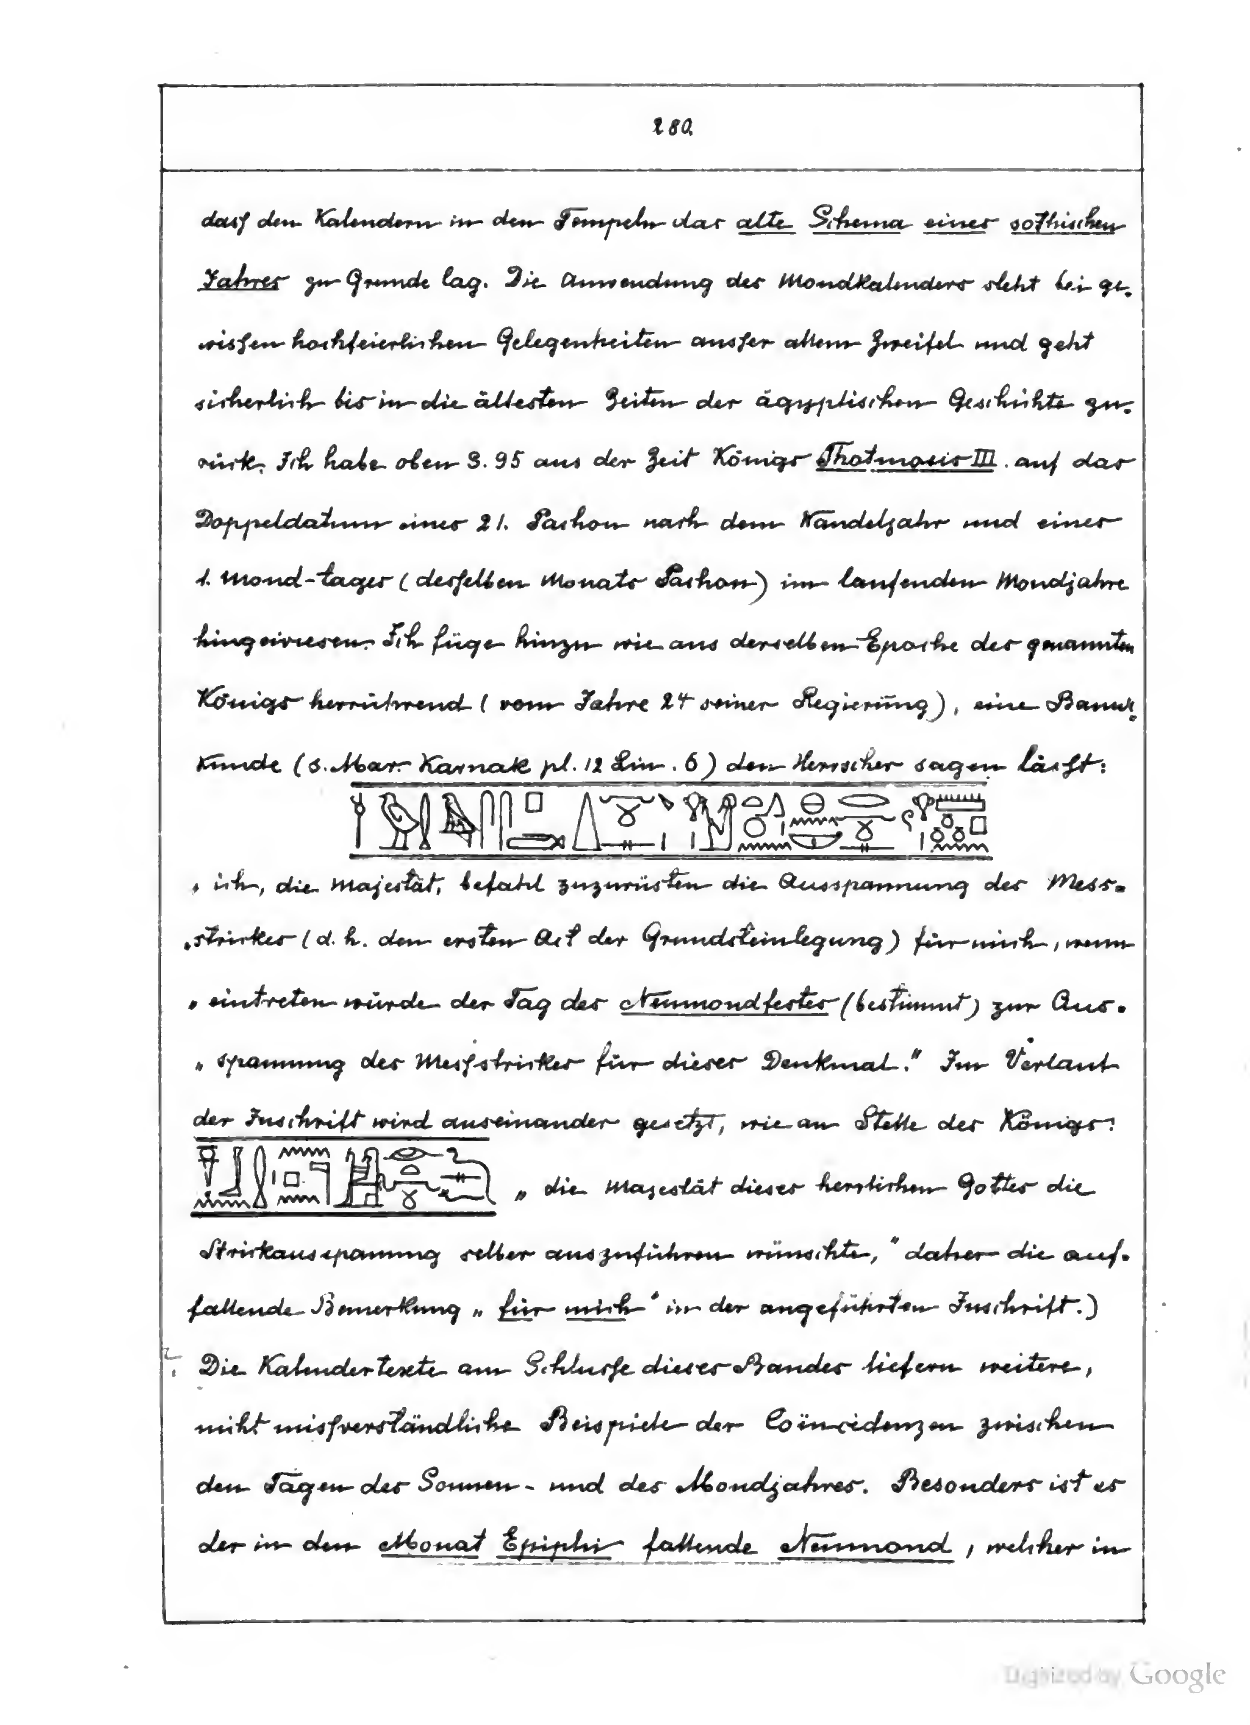 280.
daſs den Kalendern in den Tempeln das alte Schema eines sothischen
Jahres zu Grunde lag. Die Anwendung des Mondkalenders steht bei ge-
wissen hochfeierlichen Gelegenheiten ausser allem Zweifel und geht
sicherlich bis in die ältesten Zeiten der ägyptischen Geschichte zu-
rück. Ich habe oben S. 95 aus der Zeit Königs Thotmosis III. auf das
Doppeldatum eines 21. Pachon nach dem Wandeljahr und eines
1. Mond-tages (desselben Monats Pachon) im laufenden Mondjahre
hingewiesen. Ich füge hinzu wie aus derselben Epoche des genannten
Königs herrührend (vom Jahre 24 seiner Regierung), eine Bauur-
kunde (s. Mar. Karnak pl. 12 Lin. 6) den Herrscher sagen läſst:
„ ich, die Majestät, befahl zuzurüsten die Ausspannung des Mess-
„strickes (d. h. den ersten Act der Grundsteinlegung) für mich, wenn
„ eintreten würde der Tag des Neumondfestes (bestimmt) zur Aus-
„ spannung des Meſsstrickes für dieses Denkmal." Im Verlauf
der Inschrift wird auseinander gesetzt, wie an Stelle des Königs:
„ die Majestät dieses herrlichen Gottes die
Strickausspannung selber auszuführen wünschte," daher die auf-
fallende Bemerkung „ für mich" in der angeführten Inschrift.)
Die Kalendertexte am Schlusse dieses Bandes liefern weitere,
nicht miſsverständliche Beispiele der Coïncidenzen zwischen
den Tagen des Sonnen- und des Mondjahres. Besonders ist es
der in den Monat Epiphi fallende Neumond, welcher in
Digitized by Google